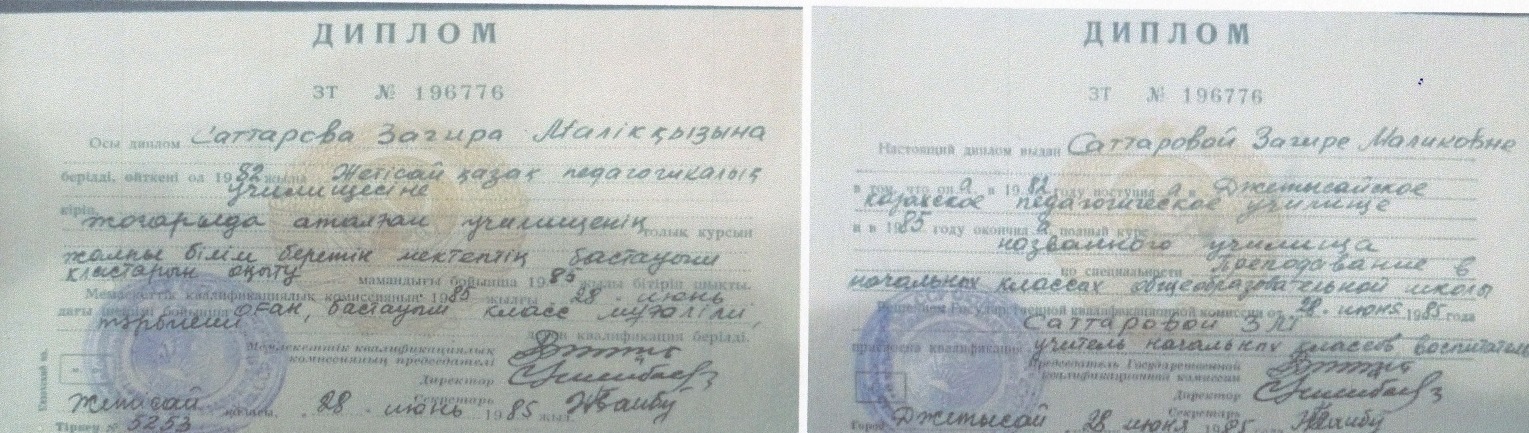 ДИПЛОМ
ЗТ № 196776
Осы диплом Саттарова Загира Малікқызына
берілді, өйткені ол 1982 жылы Жетісай қазақ педагогикалық
училищесіне
кіріп,
жоғарыда аталған училищенің толық курсын
жалпы білім беретін мектептің бастауыш
кластарын оқыту мамандығы бойынша 1985 жылы бітіріп шықты.
Мемлекеттік квалификациялық комиссияның 1985 жылғы 28 июнь
дағы шешімі бойынша оған, бастауыш класс мұғалімі,
тәрбиеші
деген квалификация берілді.
Мемлекеттік квалификациялық
комиссияның председателі
Директор
Секретарь
Жетісай қаласы, 28 июнь 1985 жыл.
Тіркеу № 5253
ДИПЛОМ
ЗТ № 196776
Настоящий диплом выдан Саттаровой Загире Маликовне
в том, что он а в 1982 году поступил а в Джетысайское
казахское педагогическое училище
и в 1985 году окончил а полный курс
названного училища
по специальности Преподавание в
начальных классах общеобразовательной школы
Решением Государственной квалификационной комиссии от 28 июня 1985 года
Саттаровой З.М
присвоена квалификация учитель начальных классов, воспитатель
Председатель Государственной
квалификационной комиссии
Директор
Секретарь
Город Джетысай 28 июня 1985 г.